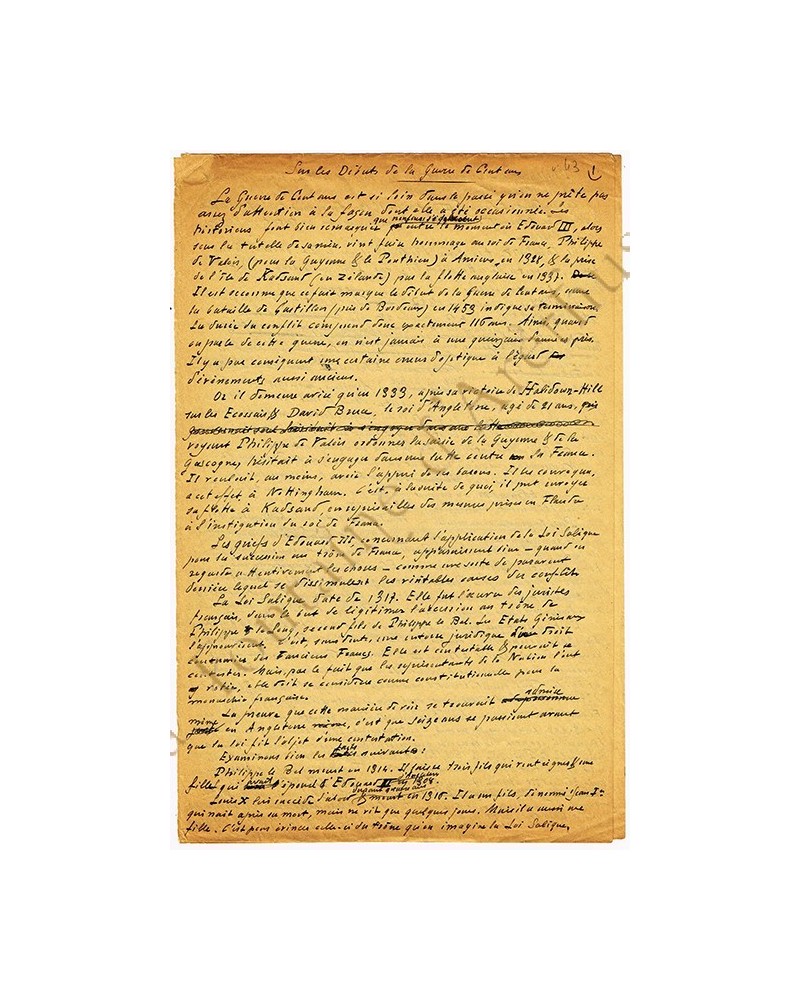 Sur les Débuts de la Guerre de Cent ans
La Guerre de Cent ans est si loin dans le passé qu'on ne prête pas
assez d'attention à la façon dont elle a été occasionnée. Les
historiens font bien remarquer que entre le moment où Edouard III, alors
sous la tutelle de sa mère, vint faire hommage au roi de France, Philippe
de Valois, (pour la Guyenne & le Ponthieu) à Amiens en 1328, & la prise
de l'île de Kadsand (en Zélande) par la flotte anglaise en 1337.
Il est reconnu que ce fait marque le début de la Guerre de Cent ans, comme
la bataille de Castillon (près de Bordeaux) en 1453 indique sa terminaison.
La durée du conflit comprend donc exactement 116 ans. Ainsi, quand
on parle de cette guerre, on n'est jamais à une quinzaine d'années près.
Il y a par conséquent une certaine erreur d'optique à l'égard
d'événements aussi anciens.
Or il demeure avéré qu'en 1333, après sa victoire de Halidown-Hill
sur les Ecossais & David Bruce, le roi d'Angleterre, agé de 21 ans,
voyant Philippe de Valois ordonner la saisie de la Guyenne & de la
Gascogne, hésitait à s'engager dans une lutte contre la France.
Il voulait, au moins, avoir l'appui de ses barons. Il les convoqua,
à cet effet, à Nottingham. C'est, à la suite de quoi, il put envoyer
sa flotte à Kadsand, en représailles des mesures prises en Flandre
à l'instigation du roi de France.
Les griefs d'Edouard III, concernant l'application de la Loi Salique
pour la succession au trône de France, apparaissent donc – quand on
regarde attentivement les choses – comme une sorte de paravent
derrière lequel se dissimulent les véritables causes du conflit.
La Loi Salique date de 1317. Elle fut l'œuvre des juristes
français, dans le but de légitimer l'accession au trône de
Philippe le Long, second fils de Philippe le Bel. Les Etats Généraux
l'approuvèrent. C'est, sans doute, une entorse juridique droit
coutumier des Francs. Elle est contestable & pouvait se
contester. Mais, par le fait que les représentants de la Nation l'ont
votée, elle doit se considérer comme constitutionnelle pour la
monarchie française.
La preuve que cette manière de voir se trouvait admise
même en Angleterre, c'est que seize ans se passèrent avant
que la loi fît l'objet d'une contestation.
Examinons bien les faits suivants :
Philippe le Bel meurt en 1314. Il laisse trois fils qui vont régner & une
fille qui épousé Edouard II d'Angleterre en 1308.
Louis X lui succède d'abord durant quatre ans & meurt en 1316. Il a un fils, dénommé Jean Ier
qui naît après sa mort, mais ne vit que quelques jours. Mais il a aussi une
fille. C'est pour évincer celle-ci du trône qu'on imagine la Loi Salique,